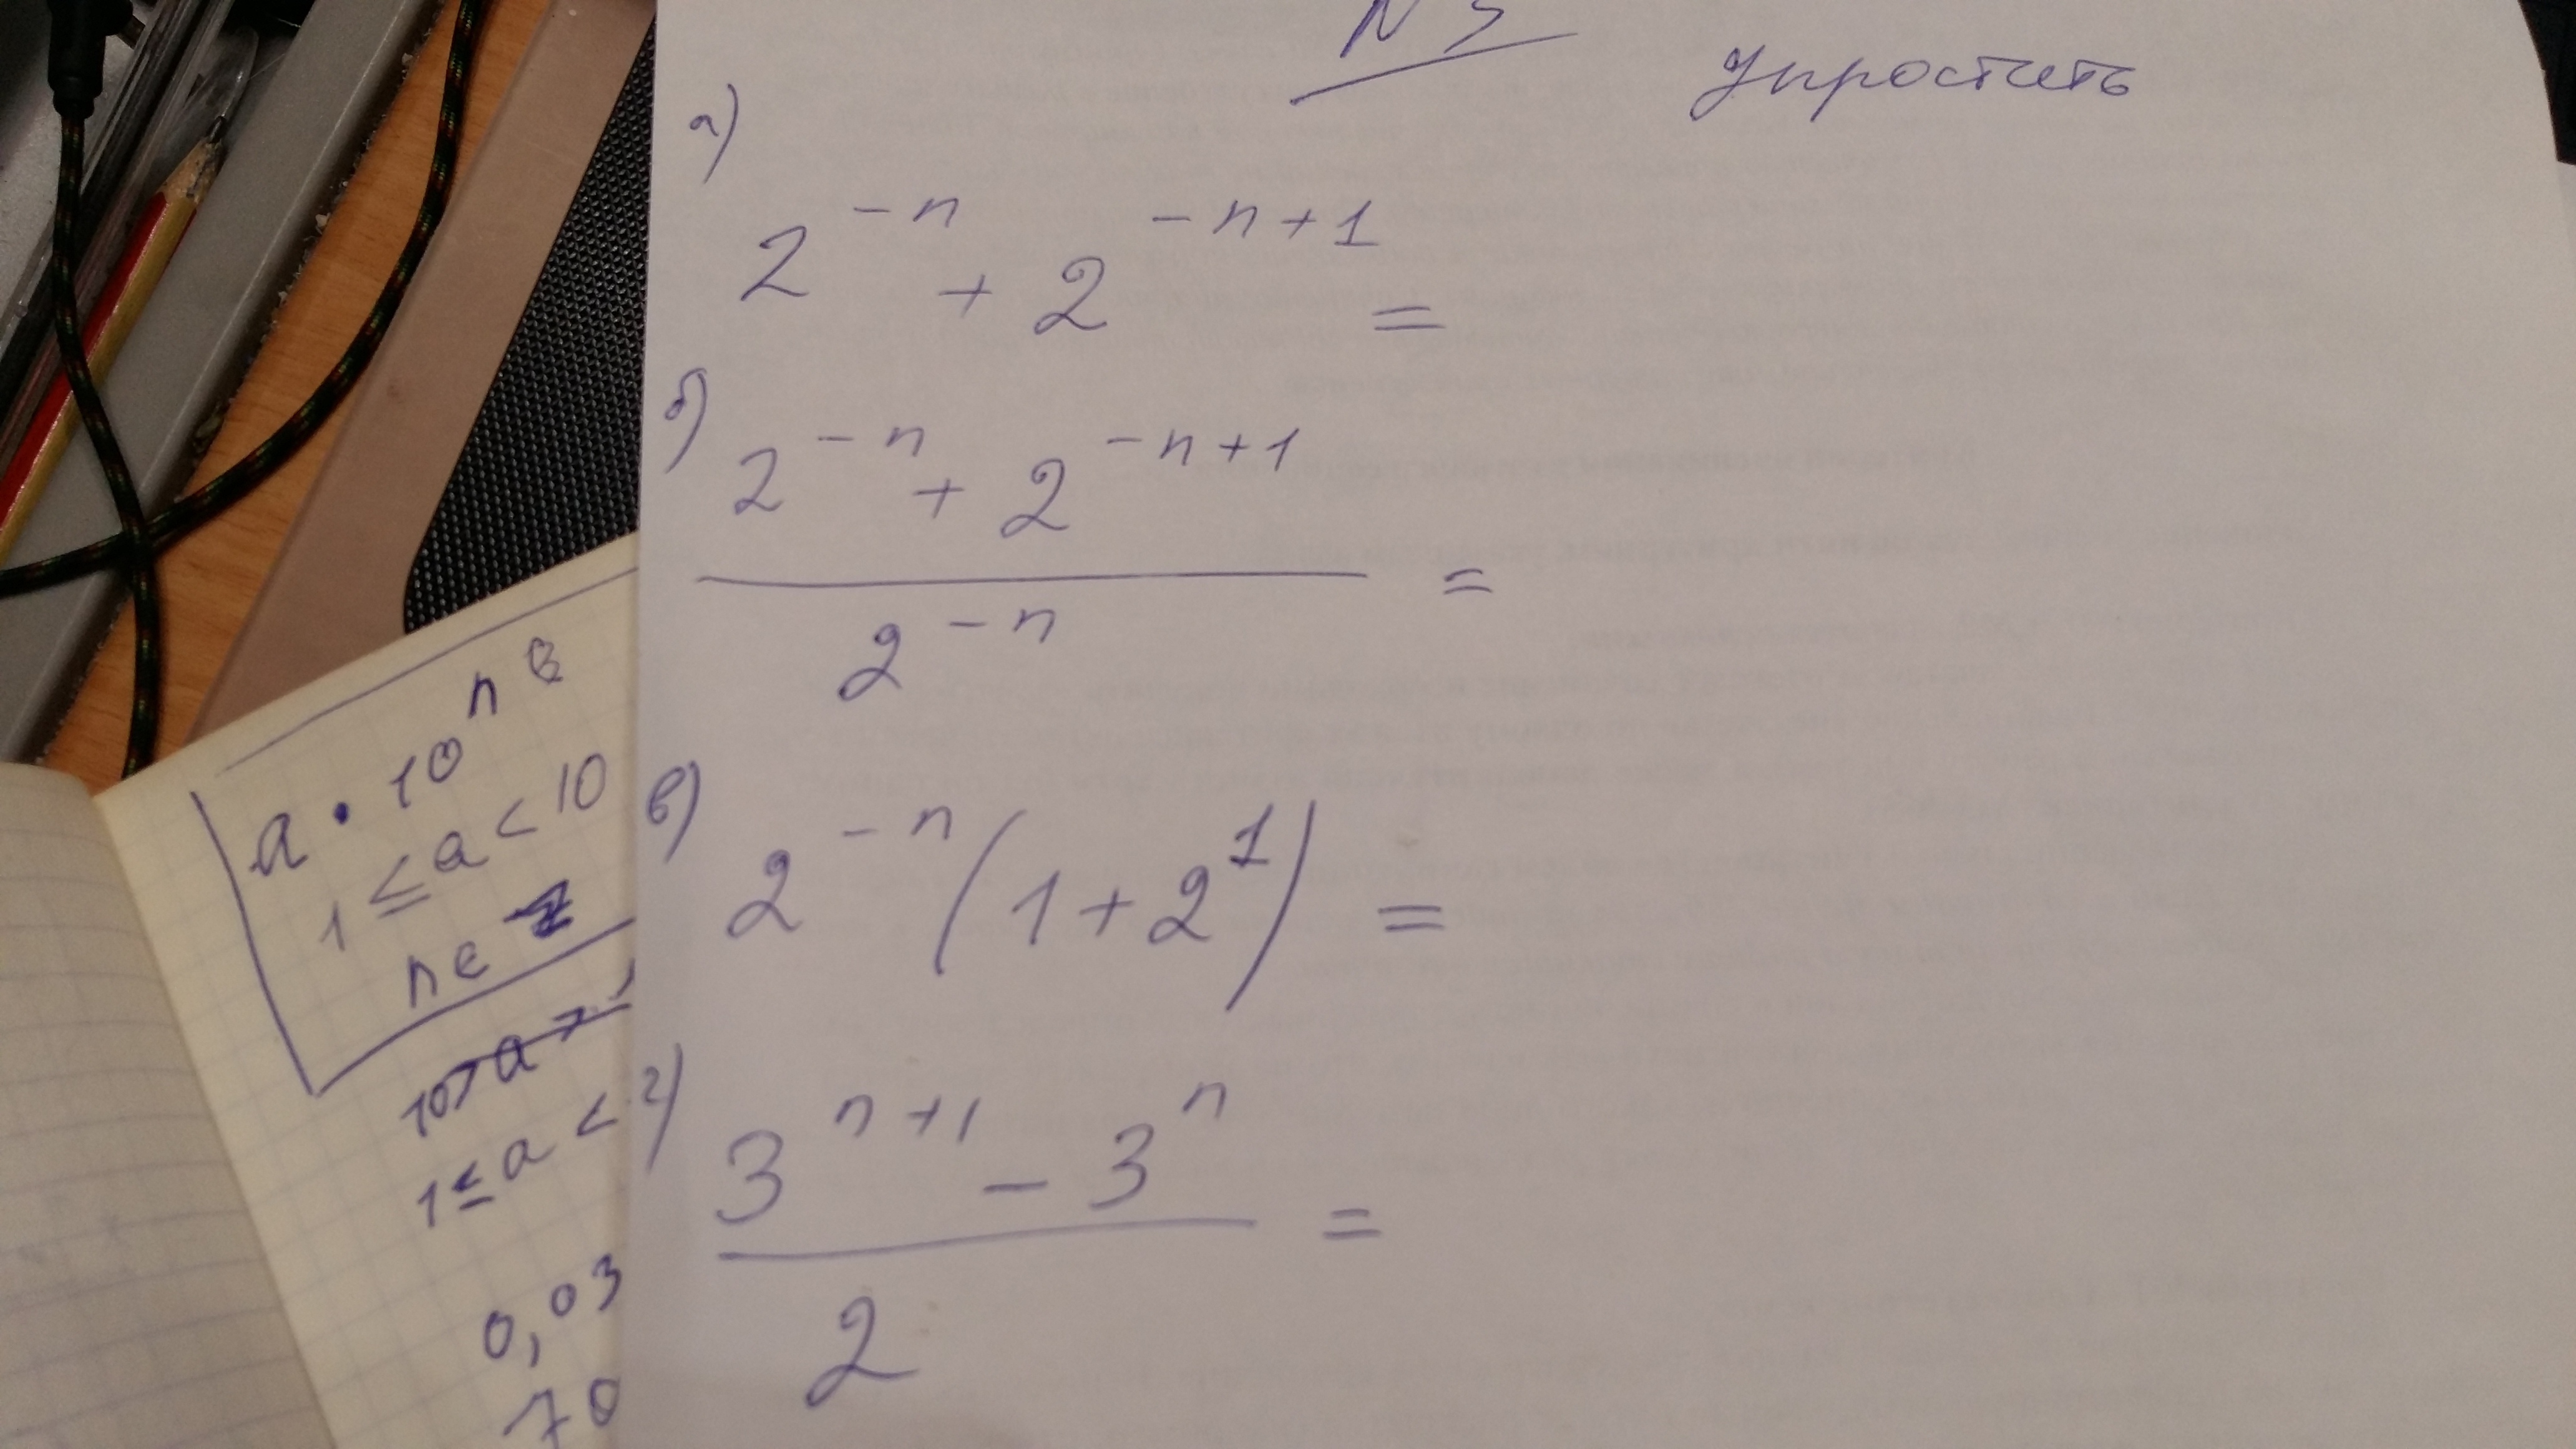 N 3
Упростить
а)
2^{-n} + 2^{-n+1} =
б)
\frac{2^{-n} + 2^{-n+1}}{2^{-n}} =
в)
2^{-n}(1+2^1) =
г)
\frac{3^{n+1} - 3^n}{2} =
a · 10^n
1 ≤ a < 10
n ∈ Z
1 ≤ a <
0,03
70